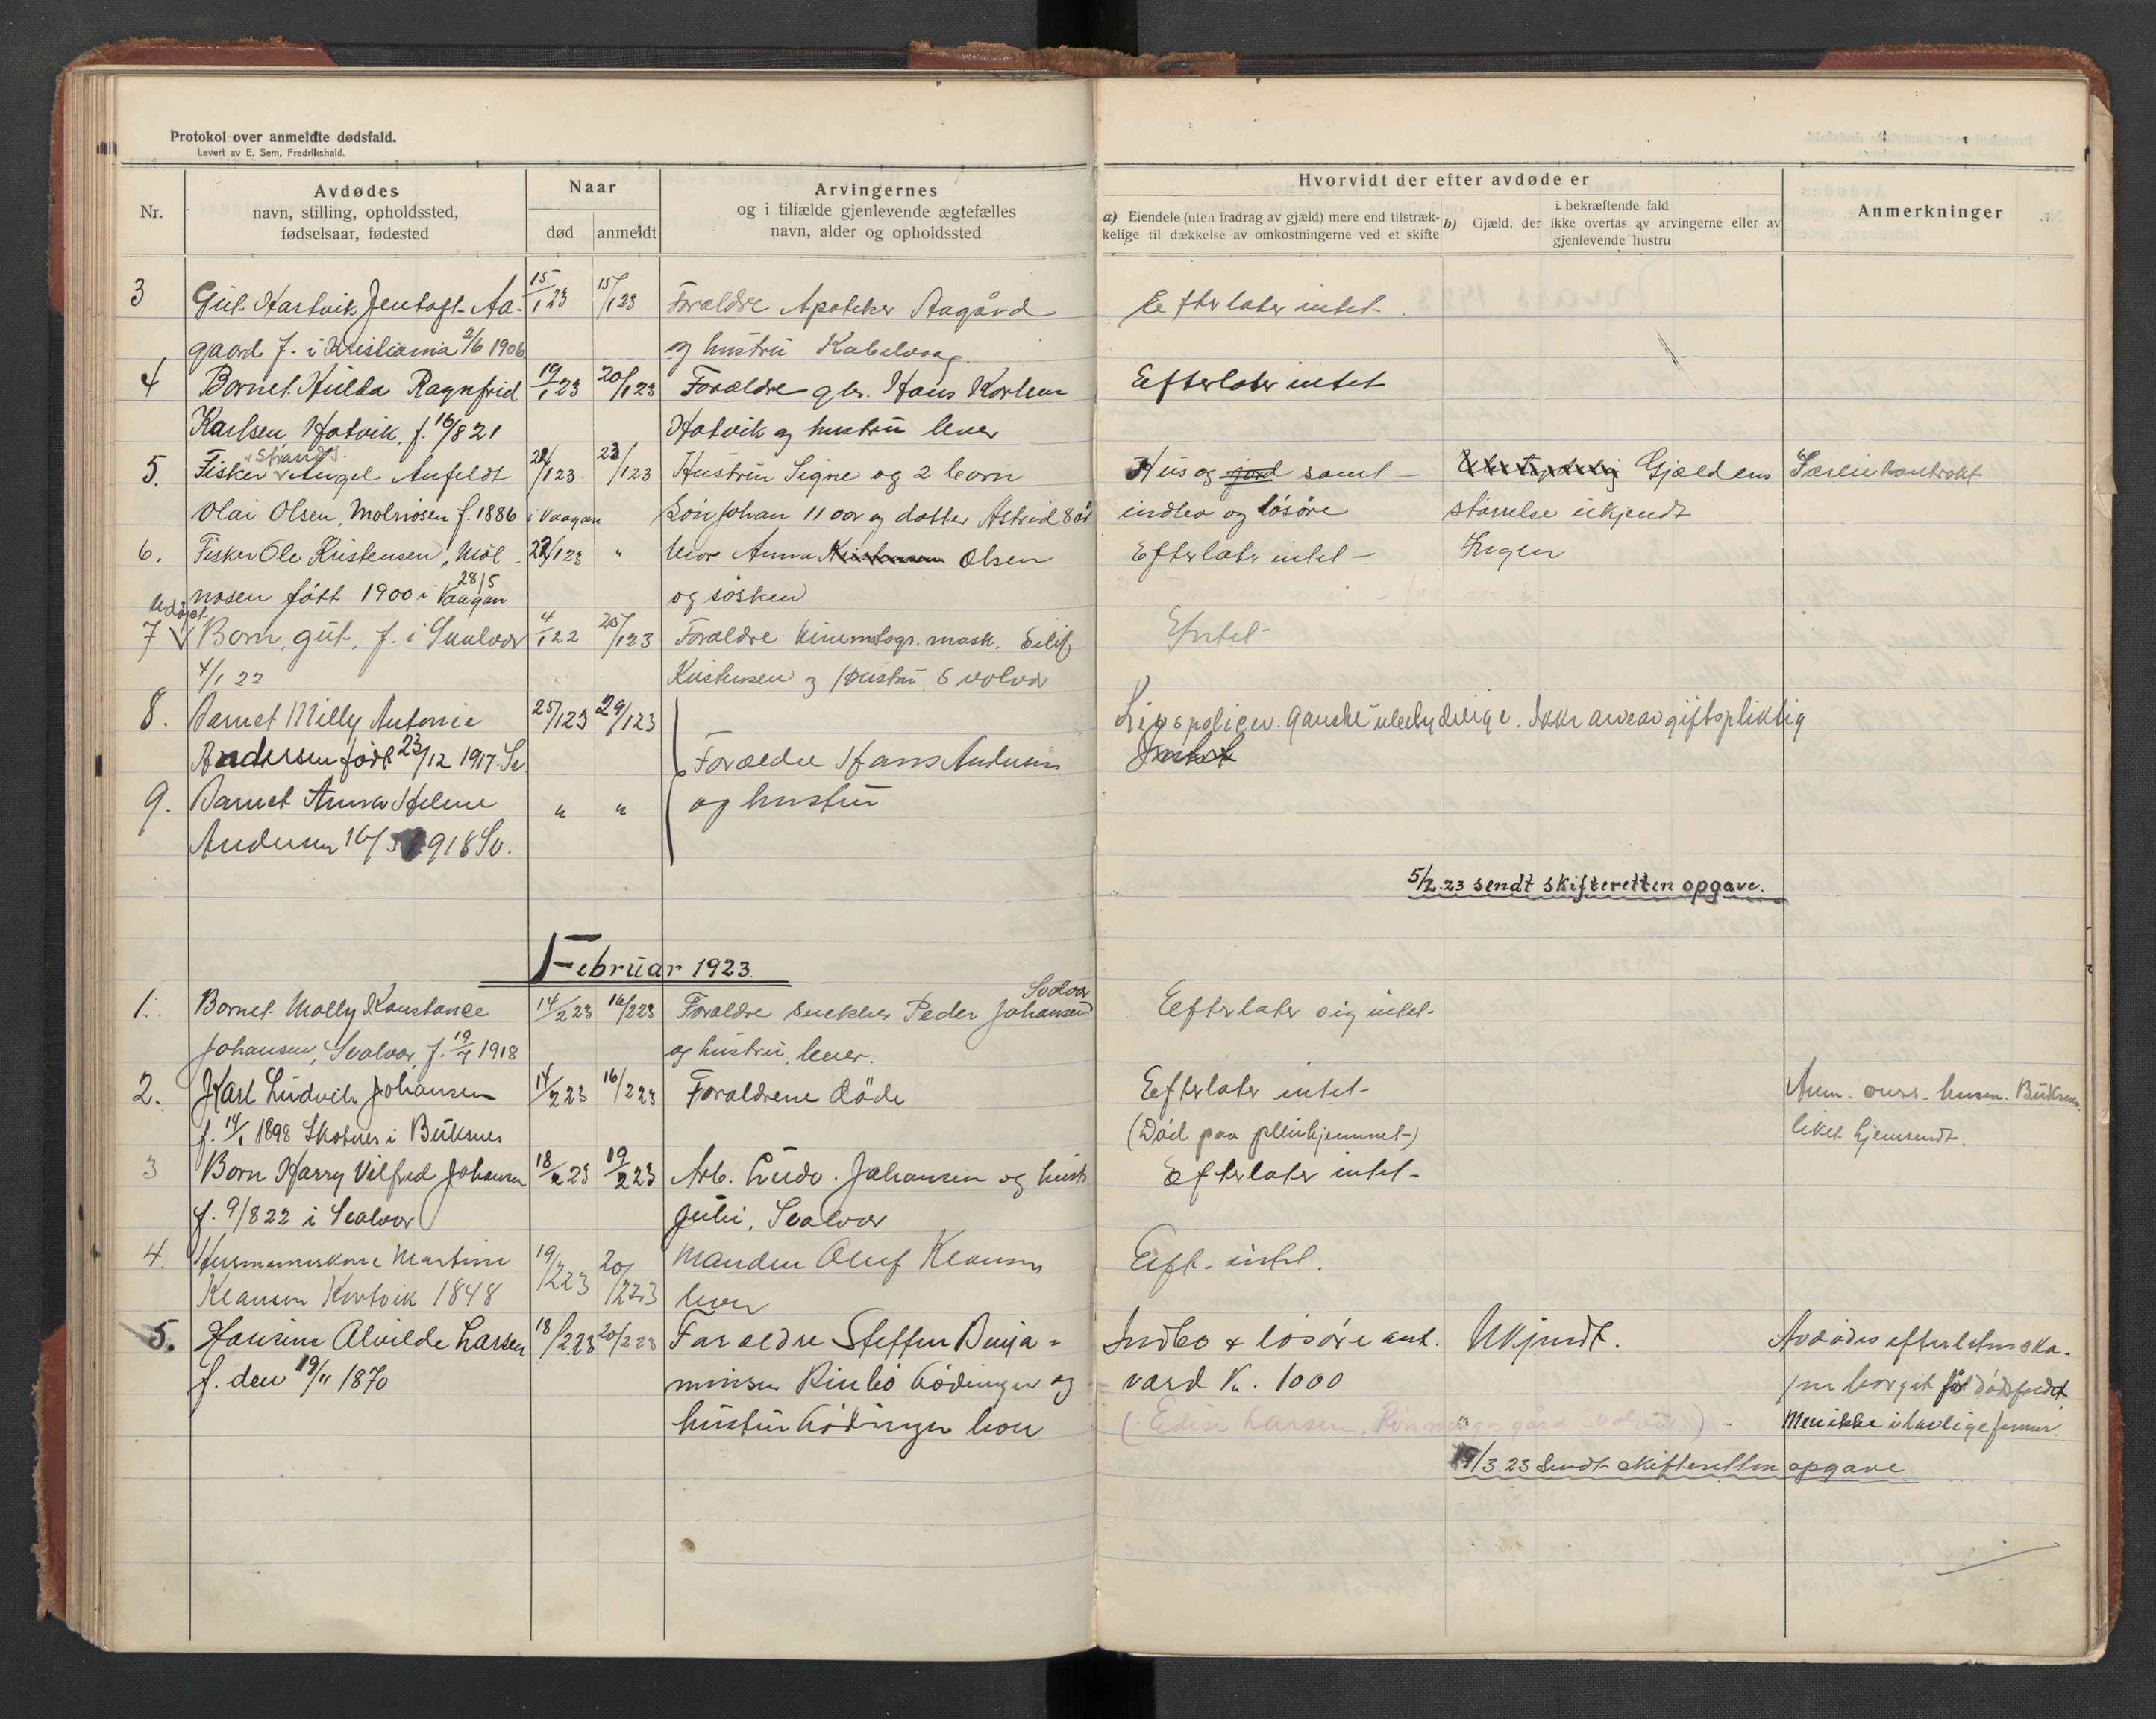 Protokol over anmeldte dødsfald.
Levert av E. Sem, Fredrikshald.
Nr.
Avdødes
navn, stilling, opholdssted,
fødselsaar, fødested
Naar
død anmeldt
Arvingernes
og i tilfælde gjenlevende ægtefælles
navn, alder og opholdssted
Hvorvidt der efter avdøde er
a) Eiendele (uten fradrag av gjæld) mere end tilstræk-
kelige til dækkelse av omkostningerne ved et skifte
i. bekræftende fald
b) Gjæld, der ikke overtas av arvingerne eller av
gjenlevende hustru
Anmerkninger
3 Gut Hartvik Jentoft Aa- 15/1 23 15/1 23 Forældre Apoteker Aagård Efterlater intet.
gaard f. i Kristiania 2/6 1906 og hustru Kabelvaag.
4 Barnet Hulda Ragnfrid 19/1 23 20/1 23 Forældre gbr. Hans Karlsen Efterlater intet
Karlsen, Hatvik, f. 16/8 21 Hatvik og hustru lever
Strands.
5. Fisker Angel Anfeldt 22/1 23 23/1 23 Hustru Signe og 2 barn Hus og jord samt Gjældens
Olai Olsen, Molnosen f. 1886 i Vaagan Søn Johan 11 aar og datter Astrid 8 år indbo og løsøre størrelse ukjendt
6. Fisker Ole Kristensen, Mol- 22/1 23 " Mor Anna Kristensen Olsen Efterlater intet - Ingen
nosen født 1900 28/5 i Vaagan og søsken
Udøpt
7 Barn, gut, f. i Svolvær 4/1 22 25/1 23 Forældre kinematogr. mask. Eilif Intet
4/1 22 Kristensen og hustru, Svolvær
8. Barnet Milly Antonie 25/1 23 29/1 23 Livspoliser. Ganske ubetydelige. Ikke arveavgiftspliktig
Andersen født 23/12 1917. Sv. Forældre Hans Andersen Intet
9. Barnet Anna Helene " " og hustru
Andersen 16/5 1918 Sv.
5/2.23 sendt skifteretten opgave.
Februar 1923.
Svolvær
1. Barnet Molly Konstance 14/2 23 16/2 23 Forældre snekker Peder Johansen Efterlater sig intet.
Johansen, Svolvær, f. 19/7 1918 og hustru, lever.
2. Karl Ludvik Johansen 14/2 23 16/2 23 Forældrene døde Efterlater intet
f. 14/1 1898 Skotnes i Buksnes (Død paa pleiehjemmet)
Buksnes.
liket hjemsendt.
3 Barn Harry Vilfred Johansen 18/2 23 19/2 23 Arb. Ludv. Johansen og hust. Efterlater intet
f. 9/8 22 i Svolvær Juli, Svolvær
4. Husmandskone Martine 19/2 23 20/2 23 Manden Oluf Klausen Eft. intet.
Klausen Kartvik 1848 lever
5. Hansine Alvilde Larsen 18/2.23 20/2 23 Forældre Steffen Benja- Indbo & løsøre ant. Ukjendt. Avdødes
f. den 19/11 1870 minsen Rinbø Lødingen og værd Kr. 1000
hustru Lødingen lever (Edise Larsen, Rønningsgård Svolvær) Men ikke i lovlige former.
/3.23 sendt skifteretten opgave